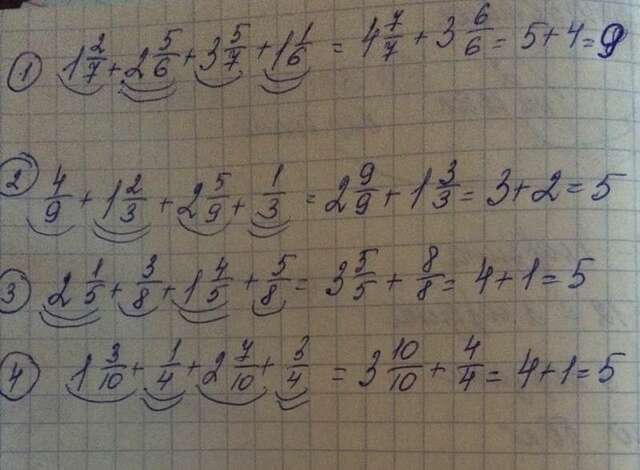 1 1 2/7 + 2 5/6 + 3 5/7 + 1 1/6 = 4 7/7 + 3 6/6 = 5 + 4 = 9
2 4/9 + 1 2/3 + 2 5/9 + 1/3 = 2 9/9 + 1 3/3 = 3 + 2 = 5
3 2 1/5 + 3/8 + 1 4/5 + 5/8 = 3 5/5 + 8/8 = 4 + 1 = 5
4 1 3/10 + 1/4 + 2 7/10 + 3/4 = 3 10/10 + 4/4 = 4 + 1 = 5